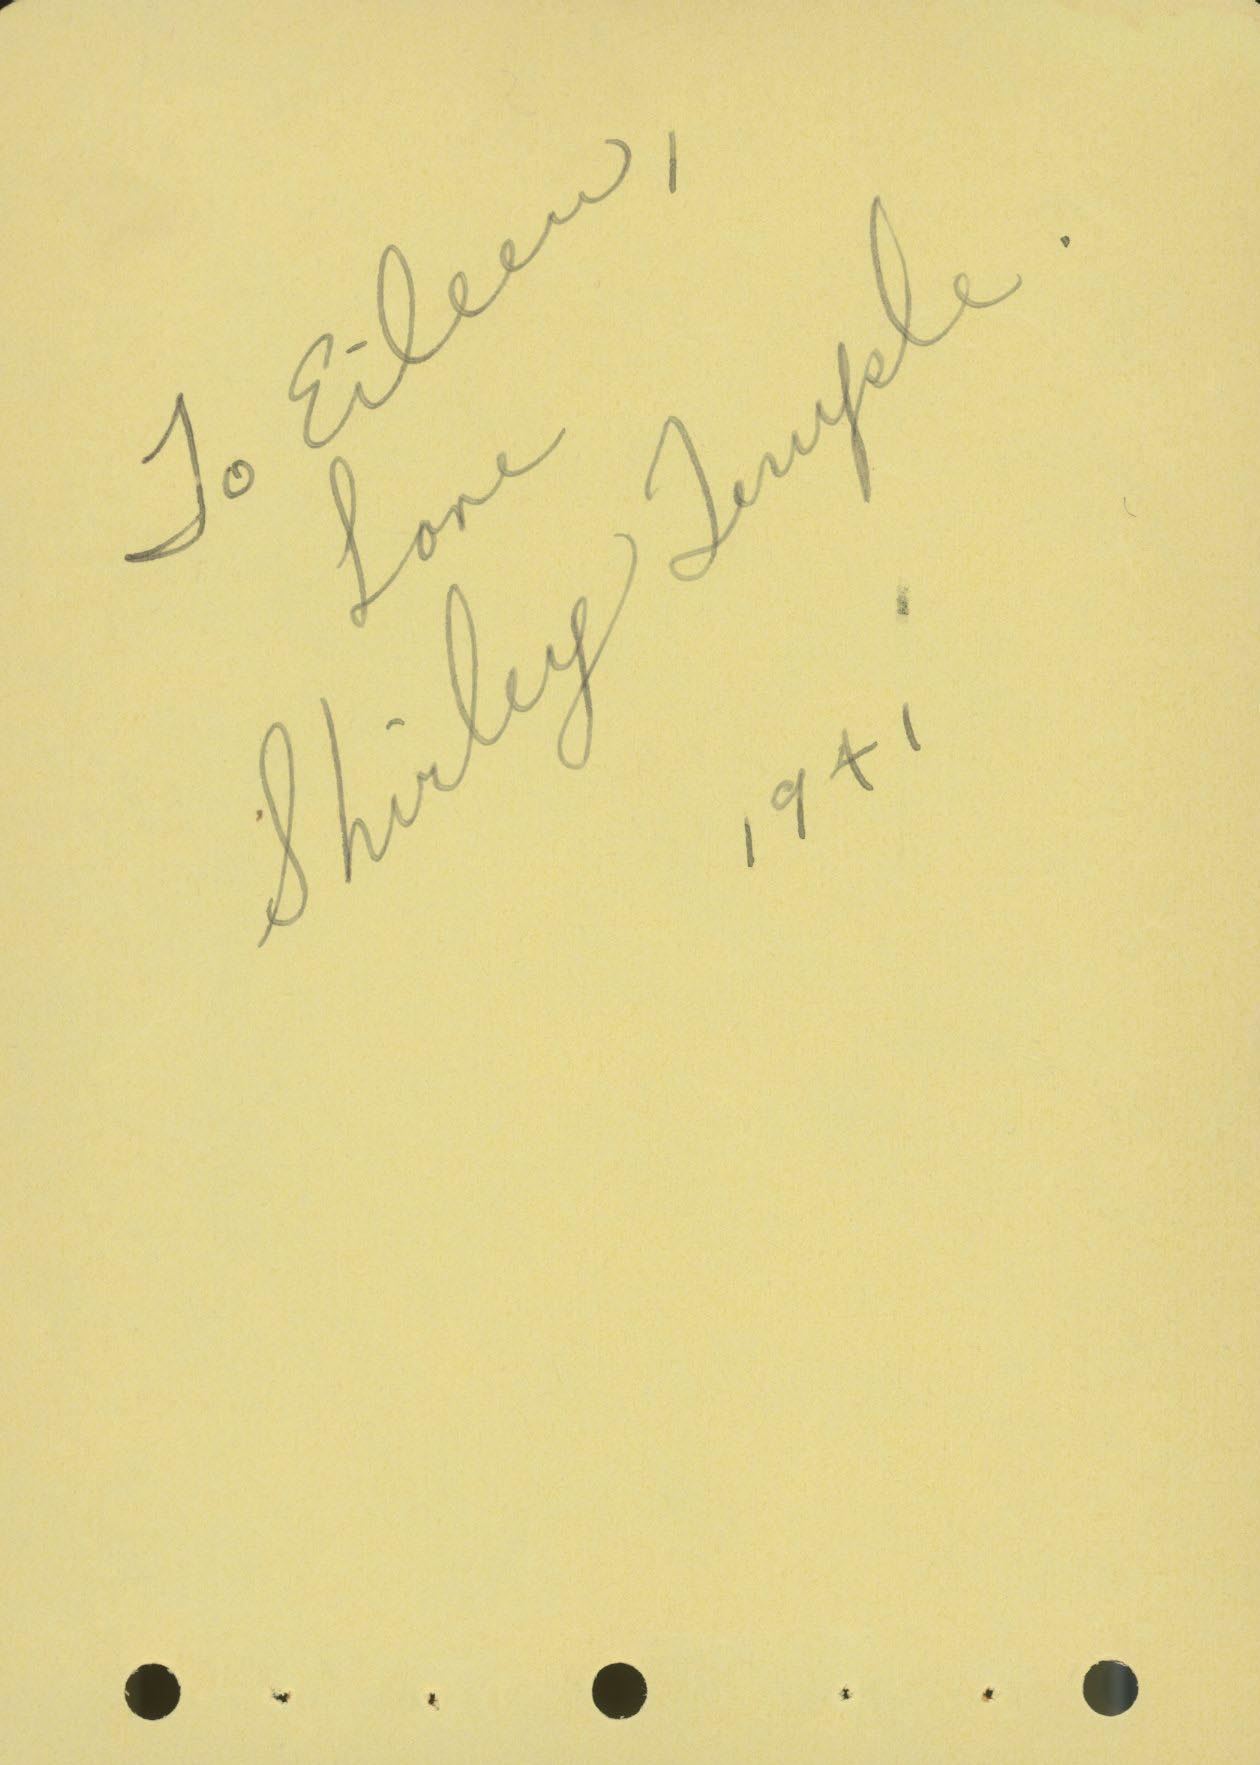 To Eileen,
Love
Shirley Temple.
1941